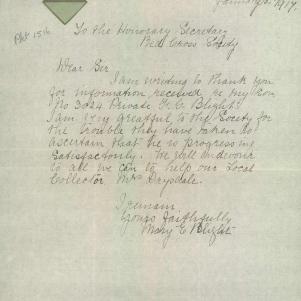 January 5. 1917.
Pkt 15th
To the Honorary Secretary
Red Cross Society
Dear Sir
I am writing to thank you
for information received re my Son
No 3024 Private F. C. Blight.
I am very greatful to the Society for
the trouble they have taken to
ascertain that he is progressing
Satisfactorily. We will endevour
to all we can to help our Local
Collector Mrs Drysdale.
I remain
Yours faithfully
Mary E Blight